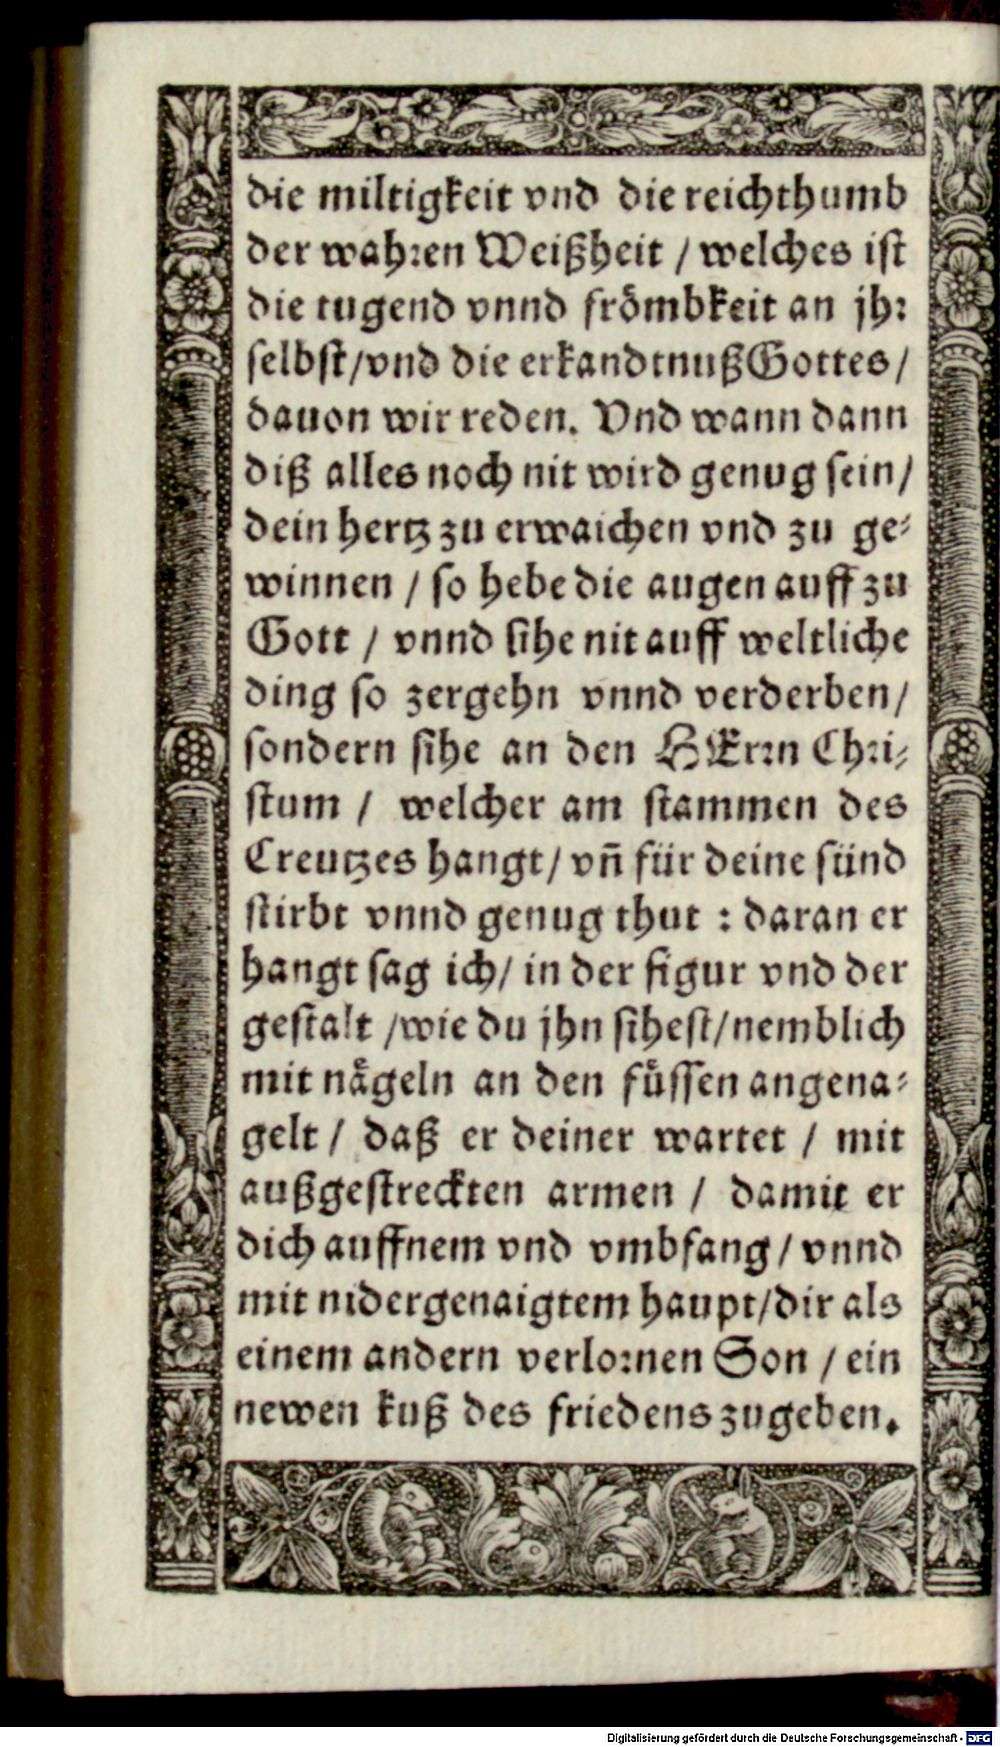 die miltigkeit vnd die reichthumb
der wahren Weißheit / welches ist
die tugend vnnd frömbkeit an jhr
selbst/vnd die erkandtnuß Gottes /
dauon wir reden. Vnd wann dann
diß alles noch nit wird genug sein /
dein hertz zu erwaichen vnd zu ge-
winnen / so hebe die augen auff zu
Gott / vnnd sihe nit auff weltliche
ding so zergehn vnnd verderben /
sondern sihe an den HErrn Chri-
stum / welcher am stammen des
Creutzes hangt / vn̄ für deine sünd
stirbt vnnd genug thut : daran er
hangt sag ich / in der figur vnd der
gestalt /wie du jhn sihest/nemblich
mit nägeln an den füssen angena-
gelt / daß er deiner wartet / mit
außgestreckten armen / damit er
dich auffnem vnd vmbfang / vnnd
mit nidergenaigtem haupt/dir als
einem andern verlornen Son / ein
newen kuß des friedens zugeben.
Digitalisierung gefördert durch die Deutsche Forschungsgemeinschaft - DFG